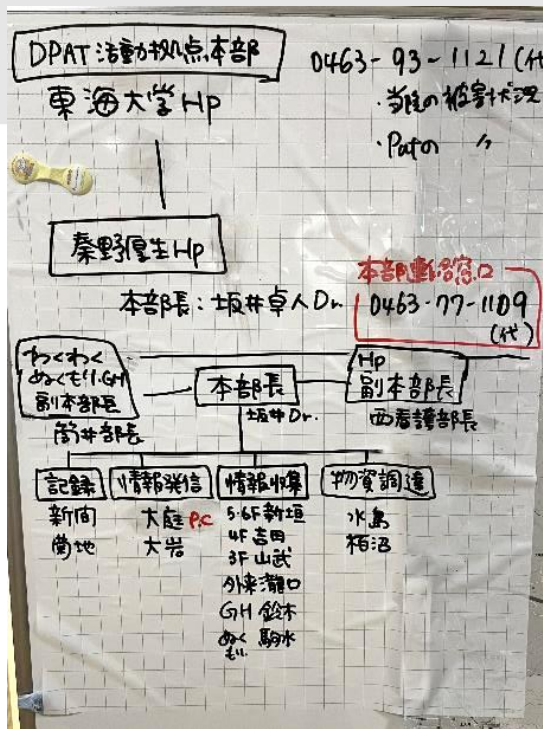 DPAT活動拠点本部
0463-93-1121(代
東海大学Hp
・当院の被害状況
・Patの 〃
秦野厚生Hp
本部連絡窓口
本部長:坂井卓人Dr.
0463-77-1109
(代)
わくわく
ぬくもり.GH
副本部長
筒井部長
本部長
坂井Dr.
Hp
副本部長
西看護部長
記録
新間
菊地
情報発信
大庭 PC
大岩
情報収集
5・6F新垣
4F吉田
3F山武
外来瀧口
GH鈴木
ぬくもり 駒水
物資調達
水島
栢沼